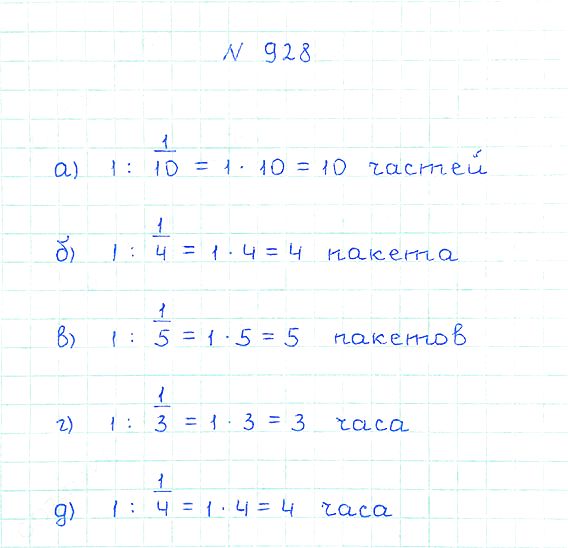 N 928
а) 1 : 1/10 = 1 · 10 = 10 частей
б) 1 : 1/4 = 1 · 4 = 4 пакета
в) 1 : 1/5 = 1 · 5 = 5 пакетов
г) 1 : 1/3 = 1 · 3 = 3 часа
д) 1 : 1/4 = 1 · 4 = 4 часа